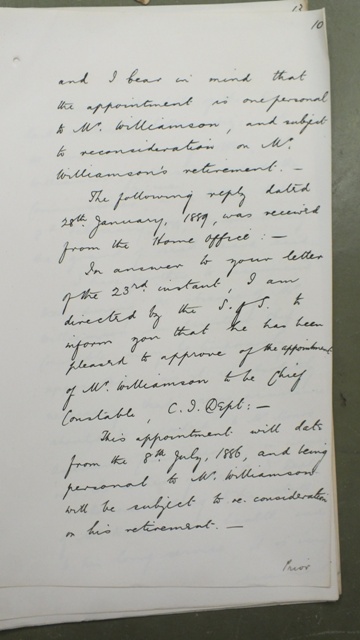 10
and I bear in mind that
the appointment is one personal
to Mr. Williamson, and subject
to reconsideration on Mr.
Williamson's retirement. —
The following reply dated
28th January, 1889, was received
from the Home Office: —
In answer to your letter
of the 23rd instant, I am
directed by the S. of S. to
inform you that he has been
pleased to approve of the appointment
of Mr. Williamson to be Chief
Constable, C. I. Dept: —
This appointment will date
from the 8th July, 1886, and being
personal to Mr. Williamson
will be subject to re-consideration
on his retirement. —
Prior